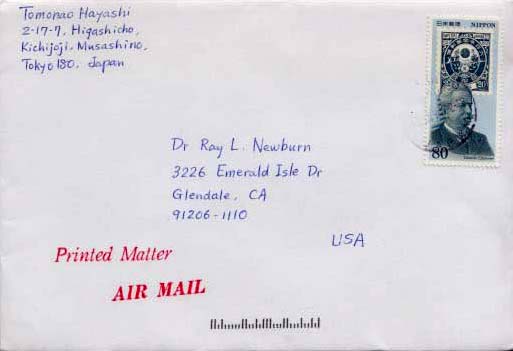 Tomonao Hayashi
2-17-7, Higashicho,
Kichijoji, Musashino,
Tokyo 180, Japan
日本郵便 NIPPON
20
80
Dr Ray L. Newburn
3226 Emerald Isle Dr
Glendale, CA
91206-1110
USA
Printed Matter
AIR MAIL